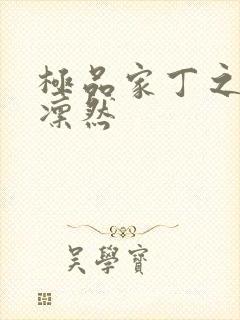 極品家丁之
凜然
吳學寶